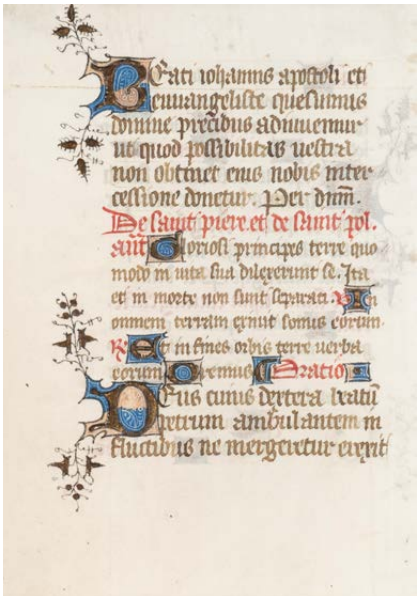 Beati iohannis apostoli et
euuangeliste quesumus
domine precibus adiuuemur
ut quod possibilitas nostra
non obtinet eius nobis inter
cessione donetur. Per dnm̄.
De saint piere. et de saint pol.
ant̄ Gloriosi principes terre quo
modo in uita sua dilexerunt se. Ita
et in morte non sunt separati. V̄ In
omnem terram exiuit sonus eorum.
R̄ Et in fines orbis terre uerba
eorum Oremus Oratio
Deus cuius dextera beatū
petrum ambulantem in
fluctibus ne mergeretur erexit